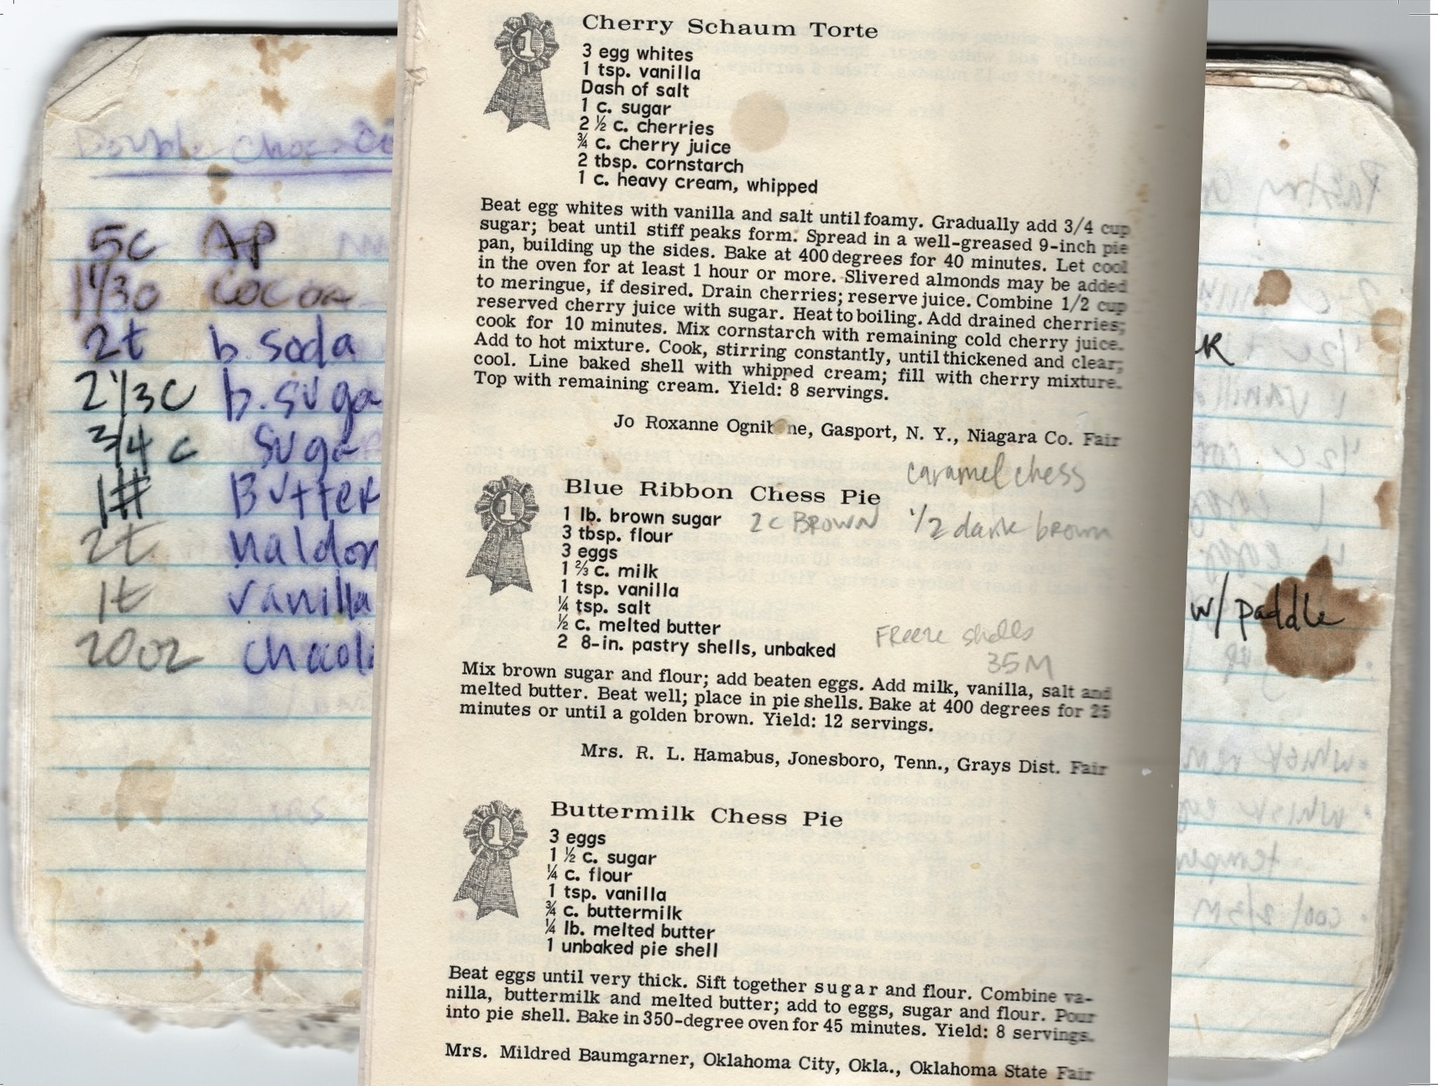 Double Choco
5c AP
1 1/3 c cocoa
2t b. soda
2 1/3 c b. suga
3/4 c suga
1# Butter
2t maldon
1t vanilla
20oz chocol
Cherry Schaum Torte
1
3 egg whites
1 tsp. vanilla
Dash of salt
1 c. sugar
2 ½ c. cherries
¾ c. cherry juice
2 tbsp. cornstarch
1 c. heavy cream, whipped
Beat egg whites with vanilla and salt until foamy. Gradually add 3/4 cup
sugar; beat until stiff peaks form. Spread in a well-greased 9-inch pie
pan, building up the sides. Bake at 400 degrees for 40 minutes. Let cool
in the oven for at least 1 hour or more. Slivered almonds may be added
to meringue, if desired. Drain cherries; reserve juice. Combine 1/2 cup
reserved cherry juice with sugar. Heat to boiling. Add drained cherries;
cook for 10 minutes. Mix cornstarch with remaining cold cherry juice.
Add to hot mixture. Cook, stirring constantly, until thickened and clear;
cool. Line baked shell with whipped cream; fill with cherry mixture.
Top with remaining cream. Yield: 8 servings.
Jo Roxanne Gasport, N. Y., Niagara Co. Fair
caramel chess
Blue Ribbon Chess Pie
1
1 lb. brown sugar 2c BROWN 1/2 dark brown
3 tbsp. flour
3 eggs
1 ⅔ c. milk
1 tsp. vanilla
¼ tsp. salt
½ c. melted butter
2 8-in. pastry shells, unbaked
Freeze shells
35M
Mix brown sugar and flour; add beaten eggs. Add milk, vanilla, salt and
melted butter. Beat well; place in pie shells. Bake at 400 degrees for 25
minutes or until a golden brown. Yield: 12 servings.
Mrs. R. L. Hamabus, Jonesboro, Tenn., Grays Dist. Fair
Buttermilk Chess Pie
1
3 eggs
1 ½ c. sugar
¼ c. flour
1 tsp. vanilla
¾ c. buttermilk
¼ lb. melted butter
1 unbaked pie shell
Beat eggs until very thick. Sift together sugar and flour. Combine va-
nilla, buttermilk and melted butter; add to eggs, sugar and flour. Pour
into pie shell. Bake in 350-degree oven for 45 minutes. Yield: 8 servings.
Mrs. Mildred Baumgarner, Oklahoma City, Okla., Oklahoma State Fair
w/ paddle